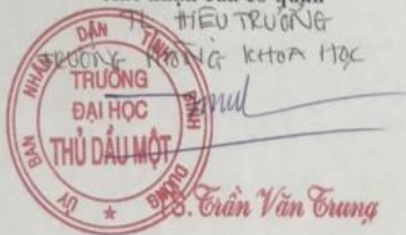 TL HIỆU TRƯỞNG
TRƯỞNG PHÒNG KHOA HỌC
ỦY BAN NHÂN DÂN TỈNH BÌNH DƯƠNG
TRƯỜNG
ĐẠI HỌC
THỦ DẦU MỘT
S. Trần Văn Trung